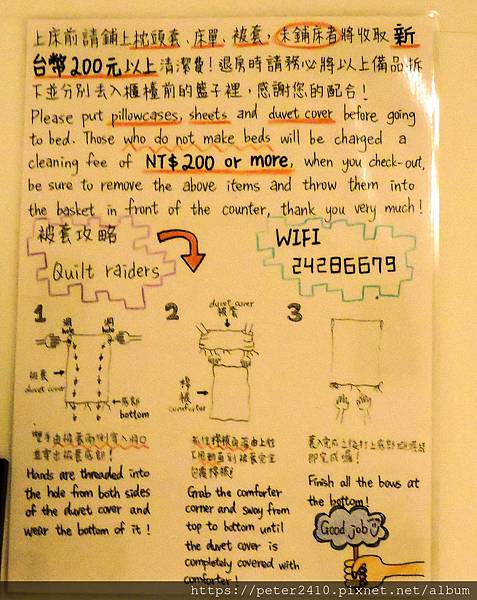 上床前請鋪上枕頭套、床單、被套，未鋪床者將收取新
台幣200元以上清潔費！退房時請務必將以上備品拆
下並分別丟入櫃檯前的籃子裡，感謝您的配合！
Please put pillowcases, sheets and duvet cover before going
to bed. Those who do not make beds will be charged a
cleaning fee of NT$200 or more, when you check-out,
be sure to remove the above items and throw them into
the basket in front of the counter, thank you very much!
被套攻略
Quilt raiders
WIFI
24286679
1
洞
hole
洞
hole
被套
duvet cover
底部
bottom
雙手由被套兩側穿入洞口
並穿出被套底部！
Hands are threaded into
the hole from both sides
of the duvet cover and
wear the bottom of it!
2
duvet cover
被套
棉被
comforter
抓住棉被角落由上往
下甩動直到被套完全
包覆棉被！
Grab the comforter
corner and sway from
top to bottom until
the duvet cover is
completely covered with
comforter!
3
套入完成之後打上底部
即完成囉！
Finish all the bows at
the bottom!
Good job
https://peter2410.pixnet.net/album